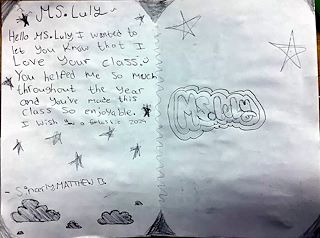 MS. Luly
Hello MS. Luly I wanted to
let you know that I
Love your class.
You helped me so much
throughout the year
and You've made this
class so enjoyable.
I wish you a 2024
- Sinarly, MATTHEW B.
MS. Luly